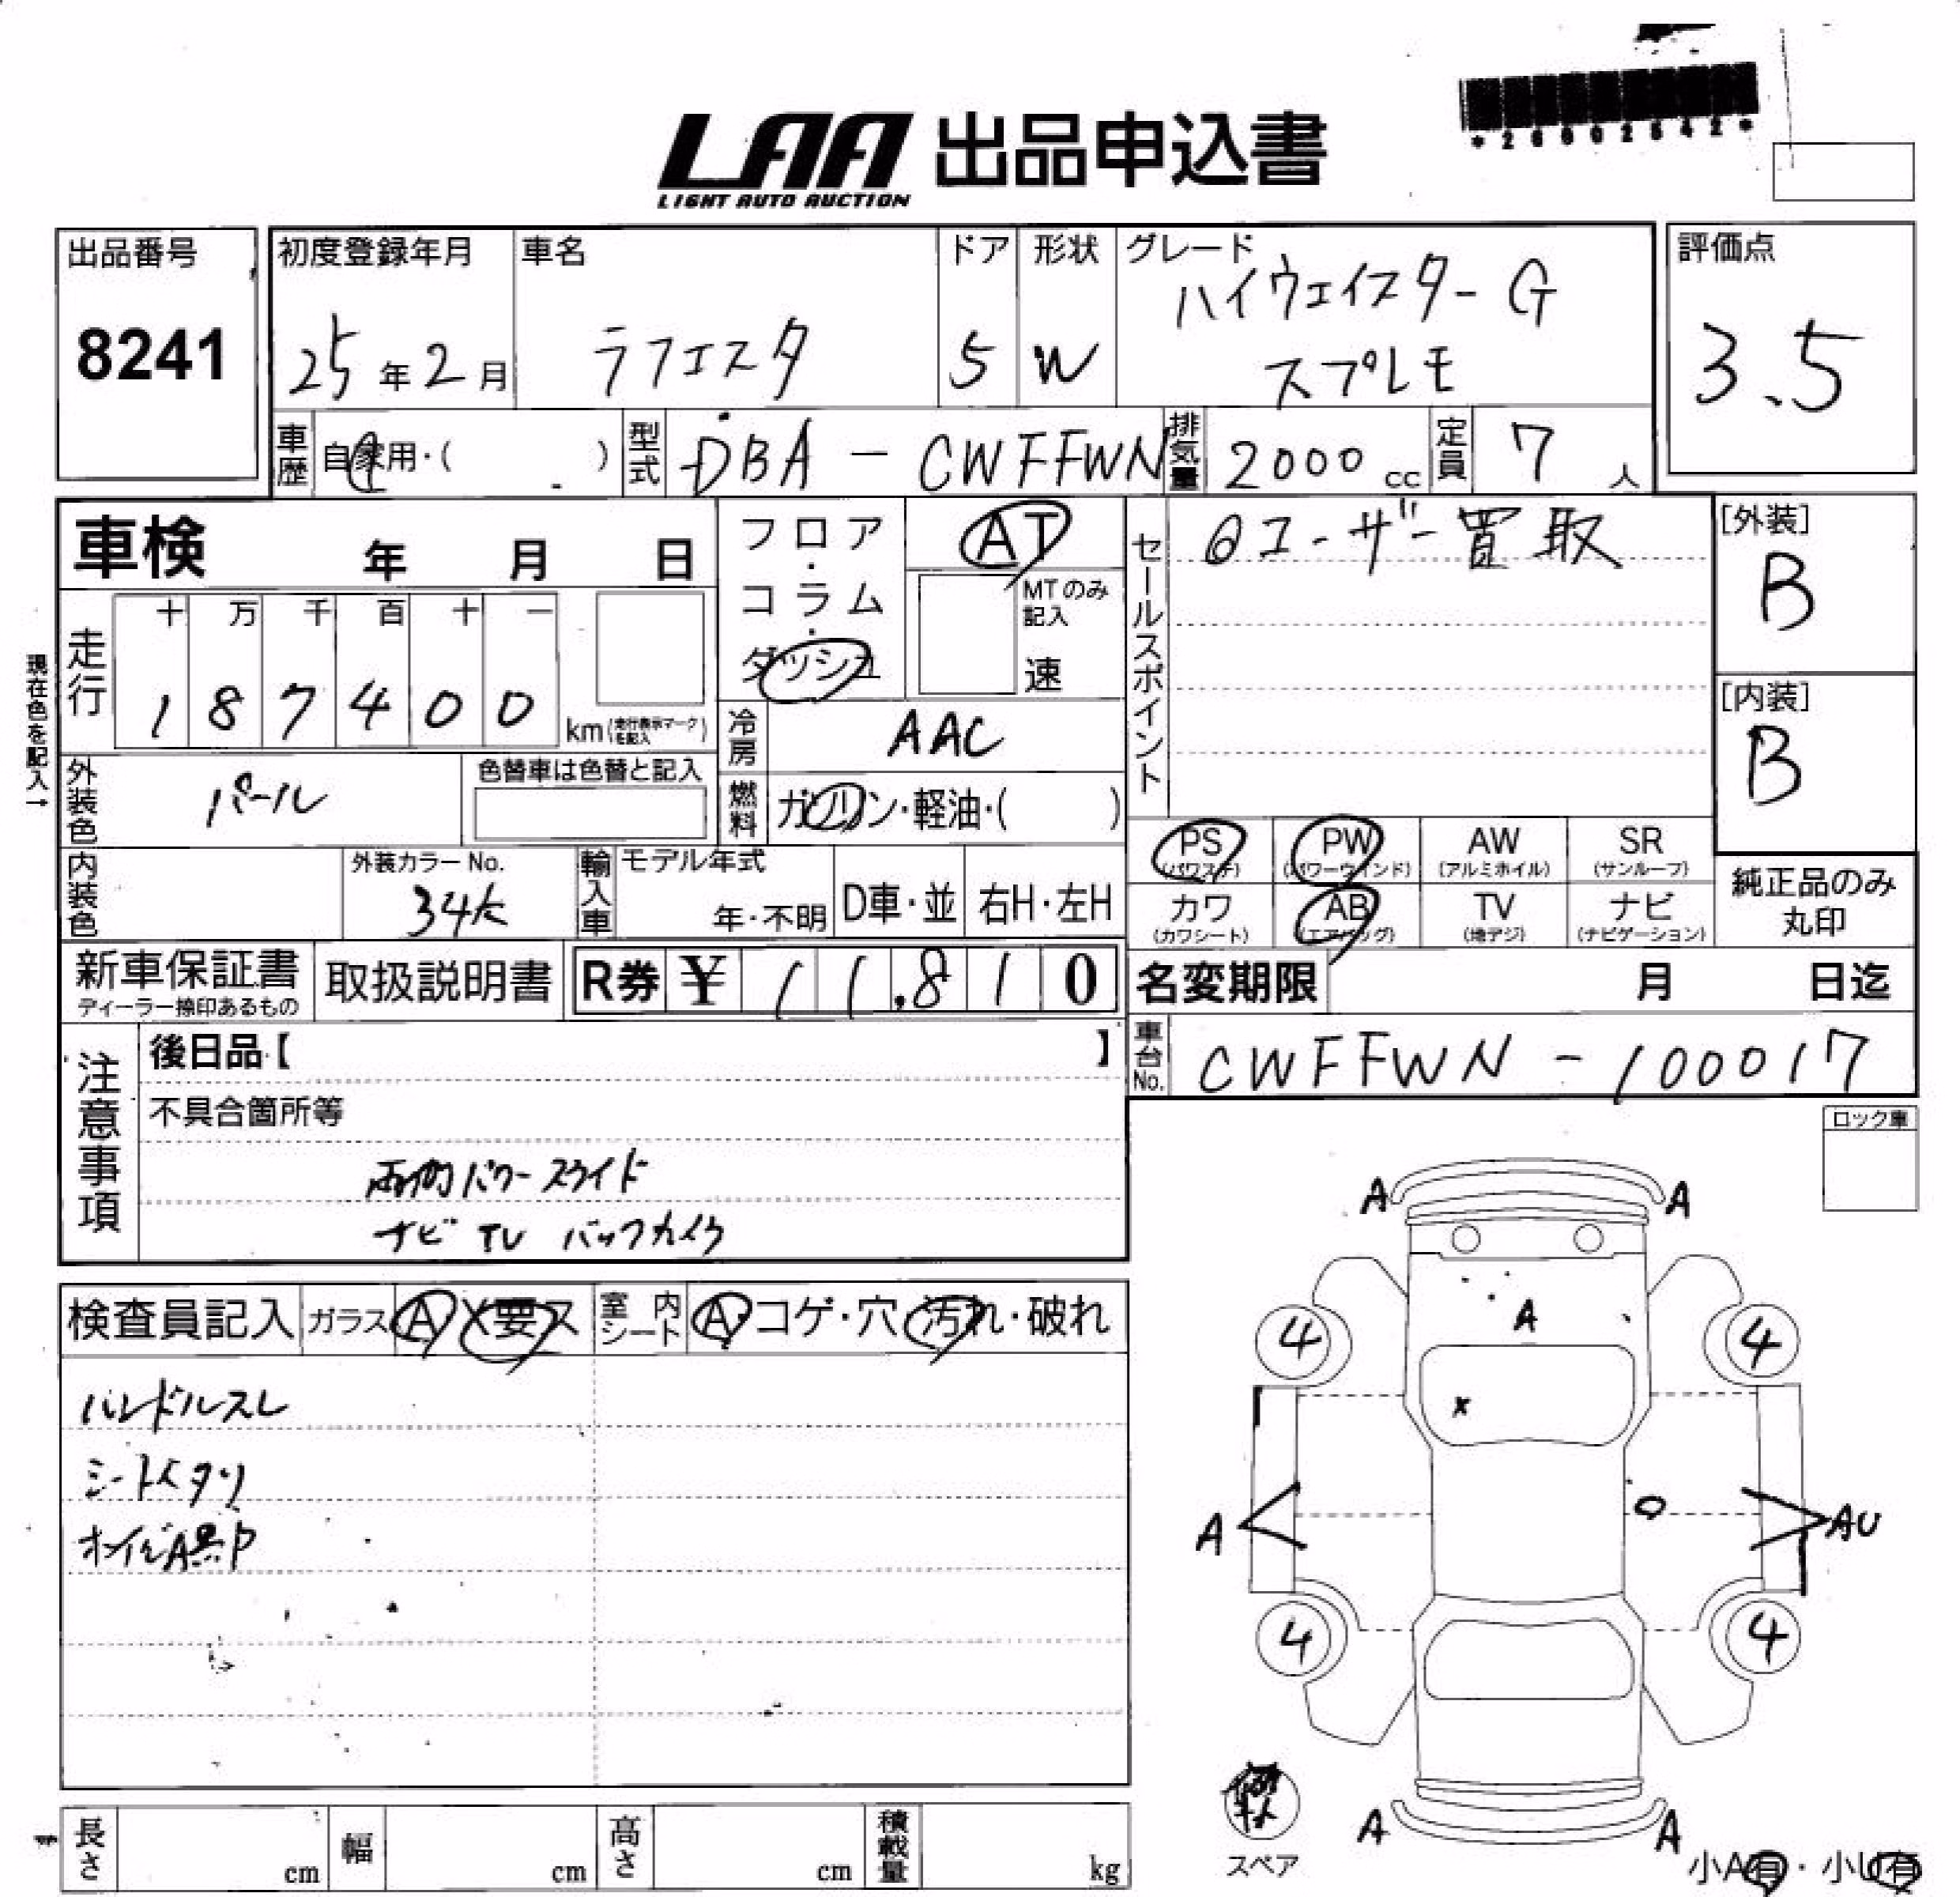 *26002542*
LAA 出品申込書
LIGHT AUTO AUCTION
出品番号
8241
初度登録年月
25年2月
車名
ラフェスタ
ドア
5
形状
W
グレード
ハイウェイスターG
スプレモ
評価点
3.5
車歴 自家用・( )
型式 DBA-CWFFWN
排気量 2000cc
定員 7人
車検 年 月 日
フロア・コラム・ダッシュ
AT
MTのみ記入
速
セールスポイント
◎ユーザー買取
[外装]
B
[内装]
B
現在色を記入→
走行
十 万 千 百 十 一
1 8 7 4 0 0 km(走行表示マークを記入)
冷房 AAC
外装色 パール
色替車は色替と記入
燃料 ガソリン・軽油・( )
PS (パワステ)
PW (パワーウインド)
AW (アルミホイル)
SR (サンルーフ)
カワ (カワシート)
AB (エアバッグ)
TV (地デジ)
ナビ (ナビゲーション)
純正品のみ
丸印
内装色
外装カラーNo.
34K
輸入車
モデル年式
年・不明
D車・並
右H・左H
新車保証書
ディーラー捺印あるもの
取扱説明書
R券 ¥ 11,810
名変期限 月 日迄
車台No. CWFFWN-100017
注意事項
後日品【 】
不具合箇所等
両側パワースライド
ナビ TV バックカメラ
ロック車
検査員記入
ガラス A X要ス
室内シート A・コゲ・穴・汚れ・破れ
ハンドルスレ
シートヘタリ
A A
A
4 4
X
A AU
4 4
A A
スペア
小A有・小U有
長さ cm
幅 cm
高さ cm
積載量 kg